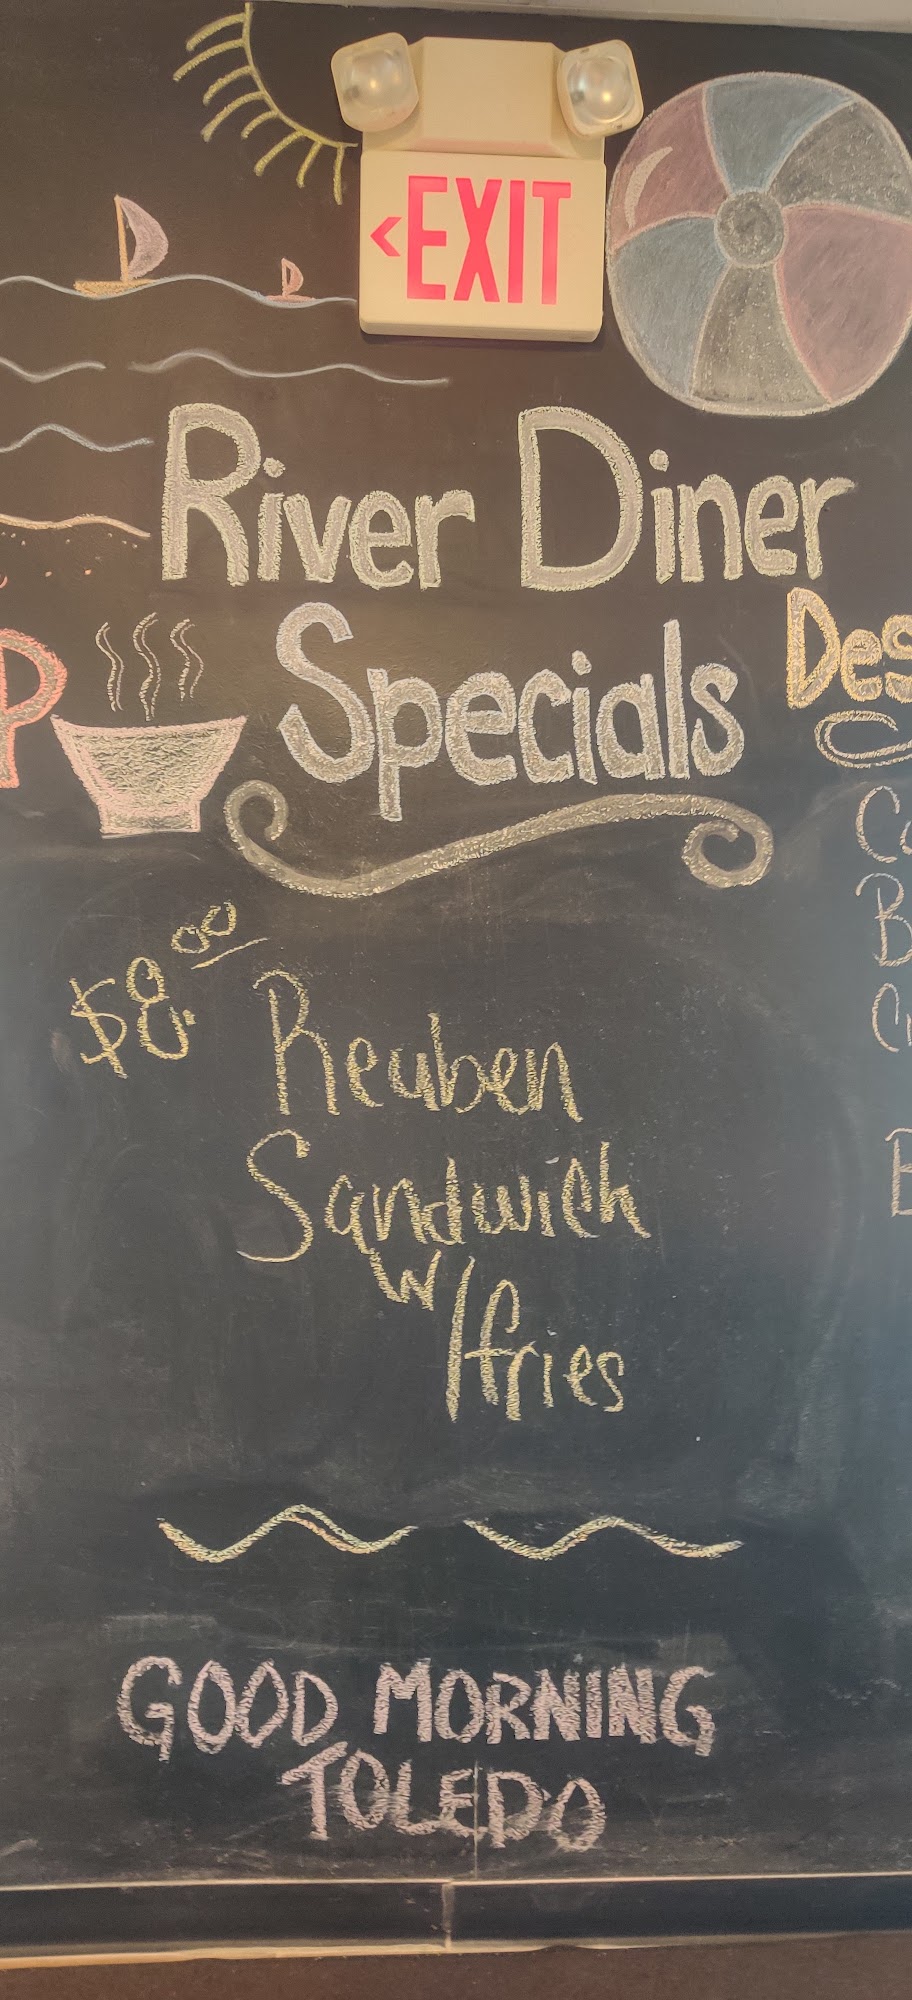 <EXIT
River Diner
Specials
P
Des
$8.00
Reuben
Sandwich
w/fries
GOOD MORNING
TOLEDO